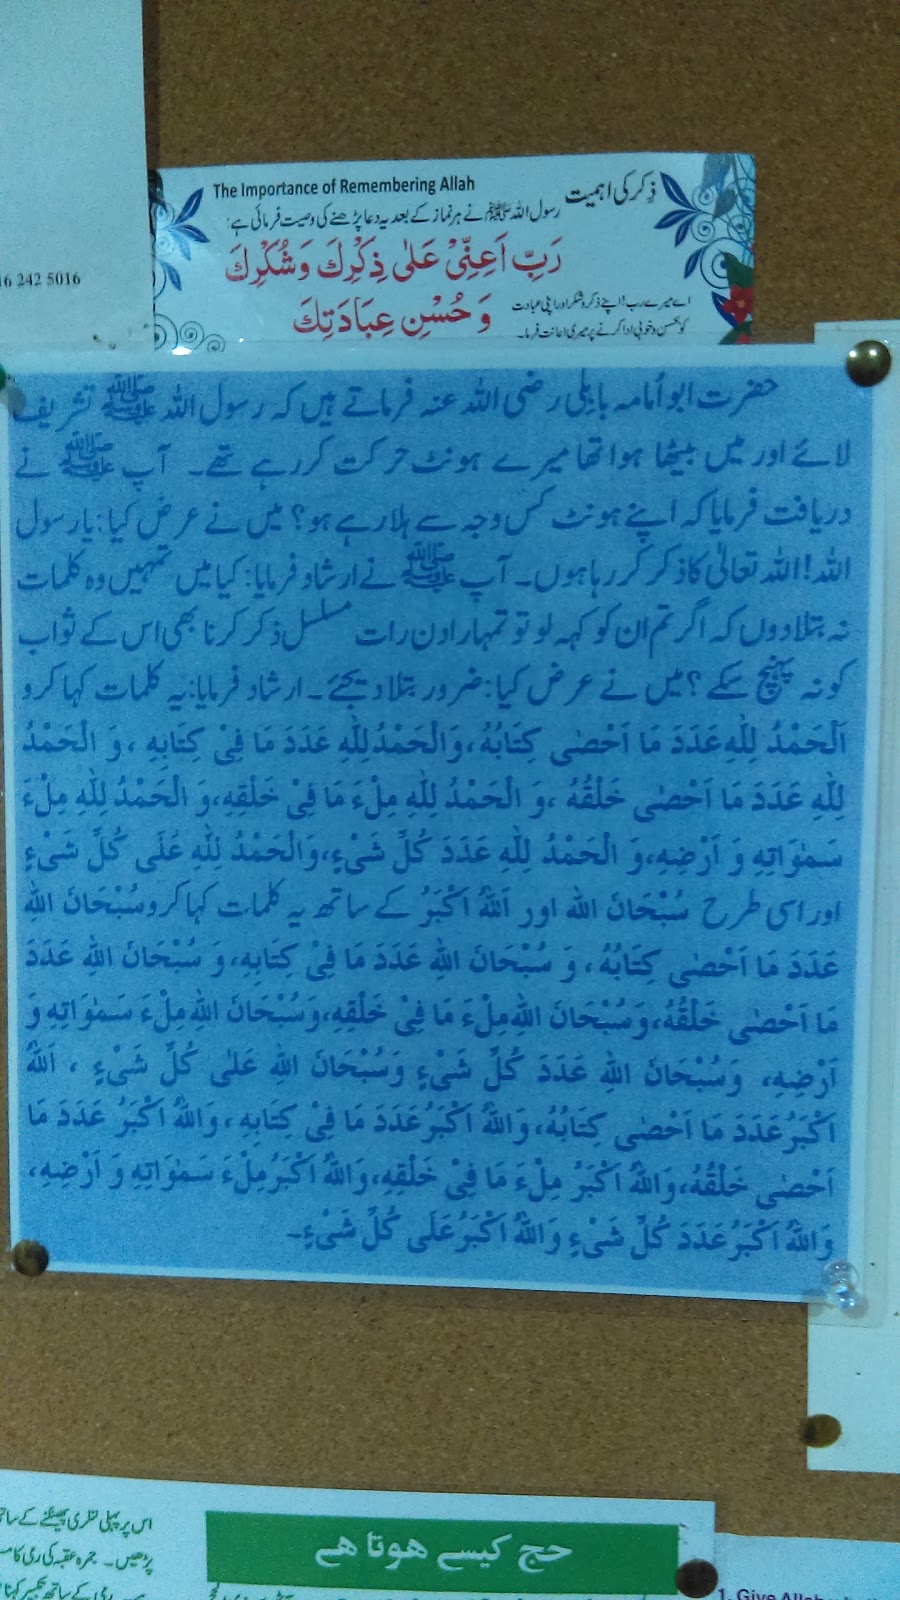 16 242 5016
The Importance of Remembering Allah
ذِکر کی اہمیت
رسول اللہ ﷺ نے ہر نماز کے بعد یہ دعا پڑھنے کی وصیت فرمائی ہے:
رَبِّ اَعِنِّیْ عَلٰی ذِکْرِكَ وَشُکْرِكَ
وَ حُسْنِ عِبَادَتِكَ
اے میرے رب! اپنے ذکر و شکر اور اپنی عبادت
کو بحسن و خوبی ادا کرنے پر میری اعانت فرما۔
حضرت ابو اُمامہ باہلی رضی اللہ عنہ فرماتے ہیں کہ رسول اللہ ﷺ تشریف
لائے اور میں بیٹھا ہوا تھا میرے ہونٹ حرکت کر رہے تھے۔ آپ ﷺ نے
دریافت فرمایا کہ اپنے ہونٹ کس وجہ سے ہلا رہے ہو؟ میں نے عرض کیا: یا رسول
اللہ! اللہ تعالیٰ کا ذکر کر رہا ہوں۔ آپ ﷺ نے ارشاد فرمایا: کیا میں تمہیں وہ کلمات
نہ بتلادوں کہ اگر تم ان کو کہہ لو تو تمہارا دن رات مسلسل ذکر کرنا بھی اس کے ثواب
کو نہ پہنچ سکے؟ میں نے عرض کیا: ضرور بتلا دیجئے۔ ارشاد فرمایا: یہ کلمات کہا کرو
اَلْحَمْدُ لِلّٰهِ عَدَدَ مَا اَحْصٰی کِتَابُهُ، وَالْحَمْدُ لِلّٰهِ عَدَدَ مَا فِیْ کِتَابِهِ ، وَ الْحَمْدُ
لِلّٰهِ عَدَدَ مَا اَحْصٰی خَلْقُهُ ، وَ الْحَمْدُ لِلّٰهِ مِلْءَ مَا فِیْ خَلْقِهِ، وَ الْحَمْدُ لِلّٰهِ مِلْءَ
سَمٰوَاتِهِ وَ اَرْضِهِ، وَ الْحَمْدُ لِلّٰهِ عَدَدَ کُلِّ شَیْءٍ، وَالْحَمْدُ لِلّٰهِ عَلَی کُلِّ شَیْءٍ
اور اسی طرح سُبْحَانَ اللہ اور اَللّٰهُ اَکْبَرُ کے ساتھ یہ کلمات کہا کرو سُبْحَانَ اللّٰهِ
عَدَدَ مَا اَحْصٰی کِتَابُهُ ، وَ سُبْحَانَ اللّٰهِ عَدَدَ مَا فِیْ کِتَابِهِ، وَ سُبْحَانَ اللّٰهِ عَدَدَ
مَا اَحْصٰی خَلْقُهُ، وَسُبْحَانَ اللّٰهِ مِلْءَ مَا فِیْ خَلْقِهِ، وَسُبْحَانَ اللّٰهِ مِلْءَ سَمٰوَاتِهِ وَ
اَرْضِهِ، وَسُبْحَانَ اللّٰهِ عَدَدَ کُلِّ شَیْءٍ وَسُبْحَانَ اللّٰهِ عَلٰی کُلِّ شَیْءٍ ، اَللّٰهُ
اَکْبَرُ عَدَدَ مَا اَحْصٰی کِتَابُهُ، وَاللّٰهُ اَکْبَرُ عَدَدَ مَا فِیْ کِتَابِهِ ، وَاللّٰهُ اَکْبَرُ عَدَدَ مَا
اَحْصٰی خَلْقُهُ، وَاللّٰهُ اَکْبَرُ مِلْءَ مَا فِیْ خَلْقِهِ، وَاللّٰهُ اَکْبَرُ مِلْءَ سَمٰوَاتِهِ وَ اَرْضِهِ،
وَاللّٰهُ اَکْبَرُ عَدَدَ کُلِّ شَیْءٍ وَاللّٰهُ اَکْبَرُ عَلَی کُلِّ شَیْءٍ۔
حج کیسے ہوتا ہے
اس پر پہلی کنکری پھینکنے کے ساتھ
پڑھیں۔ جمرہ عقبہ کی رمی کا
رمی کے ساتھ تکبیر کہنا
1. Give Allah